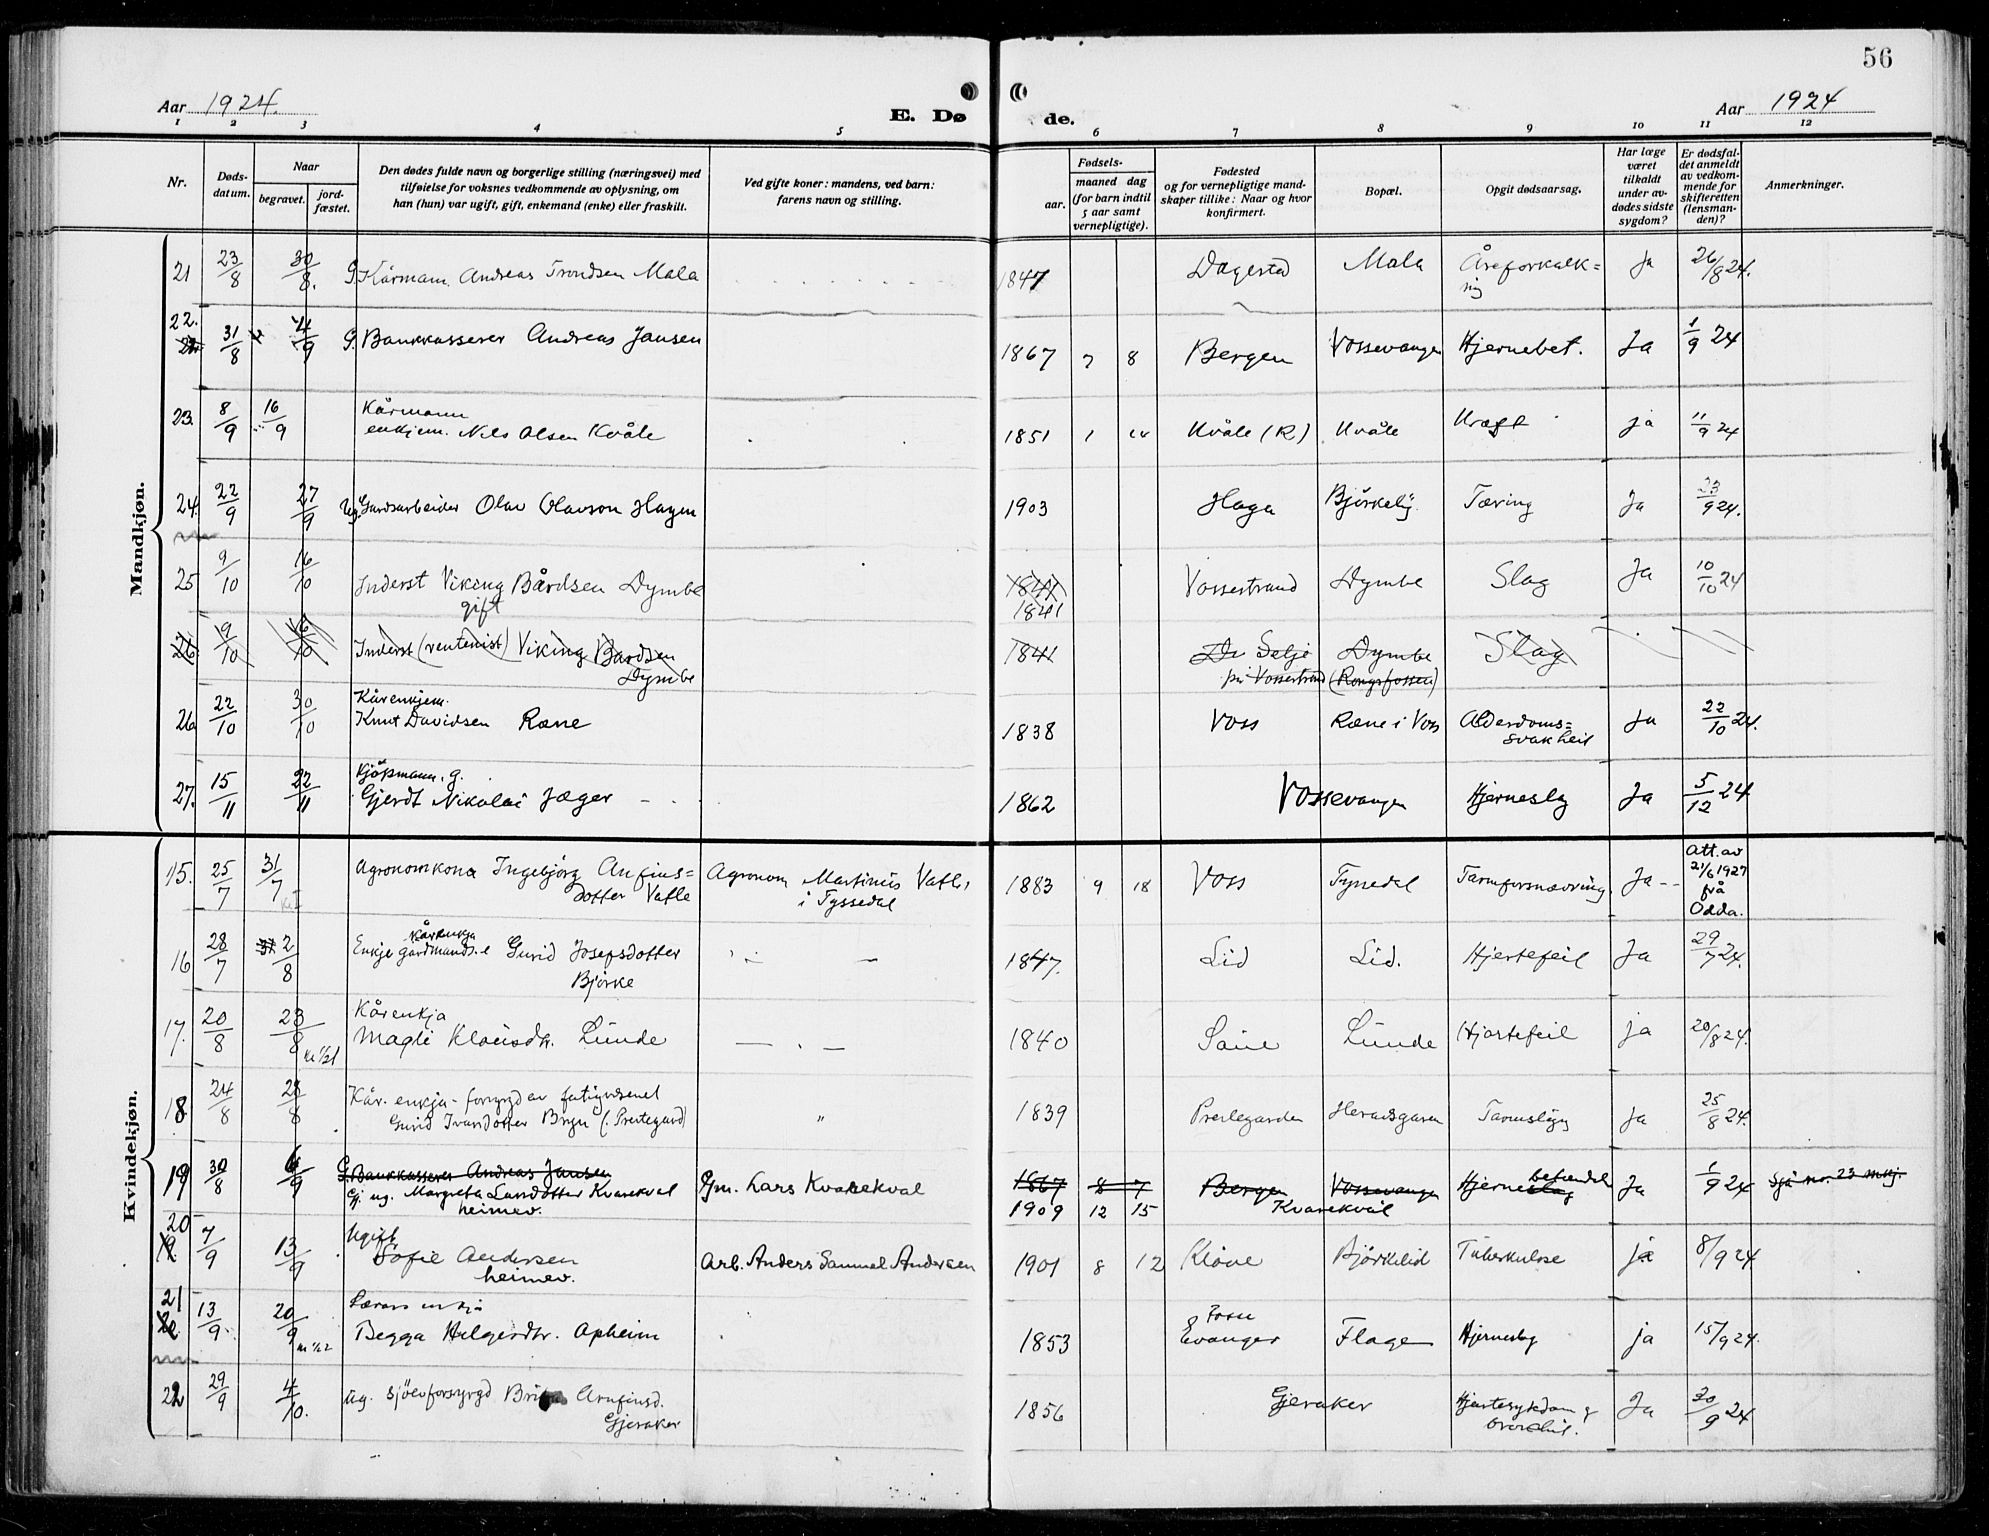 56
Aar 1924. E. Døde. Aar 1924
1 2 3 4 5 6 7 8 9 10 11 12
Nr.
Døds-
datum.
Naar
begravet.
jord-
fæstet.
Den dødes fulde navn og borgerlige stilling (næringsvei) med
tilføielse for voksnes vedkommende av oplysning, om
han (hun) var ugift, gift, enkemand (enke) eller fraskilt.
Ved gifte koner: mandens, ved barn:
farens navn og stilling.
Fødsels-
aar.
maaned dag
(for barn indtil
5 aar samt
vernepligtige).
Fødested
og for vernepligtige mand-
skaper tillike: Naar og hvor
konfirmert.
Bopæl.
Opgit dødsaarsag.
Har læge
været
tilkaldt
under av-
dødes sidste
sygdom?
Er dødsfal-
det anmeldt
av vedkom-
mende for
skifteretten
(lensman-
den)?
Anmerkninger.
Mandkjøn.
21 23/8 30/8. G. Kårmann Andreas Trondsen Mala 1847 Dagestad Mala Åreforkalk= Ja 26/8 24.
ng
22. 31/8 4/9 G. Bankkasserer Andreas Jansen 1867 7 8 Bergen Vossevangen Hjernebet. Ja 1/9 24
23. 8/9 16/9 Kårmann
enkjem. Nils Olsen Kvåle 1851 1 Kvåle (R) Kvåle Kræft ja 11/9 24
24. 22/9 27/9 Ug. Gardsarbeider Olav Olavson Hagen 1903 Haga Björkelij Tæring Ja 23/9 24.
25 9/10 16/10 Inderst Viking Bårdsen Dymbe 1841 Vossestrand Dymbe Slag Ja 10/10 24
gift 1841
26 9/10 16/10 Inderst (rentenist) Viking Bardsen 1841 Selje Dymbe Slag
Dymbe på Vossestrand (Rongsfossen)
26 22/10 30/10 Kårenkjem.
Knut Davidsen Ræne 1838 Voss Ræne i Voss Alderdoms= Ja 22/10 24.
svakheit
27. 15/11 22/11 Kjöpmann, g.
Gjerdt Nikolai Jæger 1862 Vossevangen Hjerneslag Ja 5/12 24
Kvindekjøn.
15. 25/7 31/7 Agronomkona Ingebjörg Anfins= Agronom Martinus Vatle 1883 9 18 Voss Tyssedal Tarmforsnævring. Ja -- Att. av
dotter Vatle i Tyssedal 21/6 1927
frå
Odda.
16 28/7 2/8 Kårenkja
Enkje gardmands. Gurid Josefsdotter 1847. Lid Lid. Hjertefeil Ja 29/7 24.
Björke
17. 20/8 23/8 Kårenkja
Magli Klausdtr. Lunde 1840 Saue Lunde Hjartefeil ja 20/8 24.
18 24/8 28/8 Kår. enkja - forsyrgd av fatigvesenet
Gurid Ivarsdotter Bryn (Prestegard) " 1839 Prestegarden Heradsgaren Tarmslyng ja 25/8 24.
19 30/8 6/9 G. Bankkasserer Andreas Jansen 1867 8 7 Bergen Vossevangen Hjerneslag betendelse Ja 1/9 24 Sjå nr. 23 mkj.
Gj. ug. Margreta Larsdotter Kvarekval Gm. Lars Kvarekval 1909 12 15 Kvarekvål
heimev.
20 7/9 13/9 Ugift
Sofie Andersen Arb. Anders Samuel Andersen 1901 8 12 Klöve Björkelid Tuberkulose ja 8/9 24
heimev.
21 13/9. 20/9 Lærars enkja
Begga Helgesdtr. Opheim 1853 Evanger Flage Hjerneslag ja 15/9 24.
22 29/9 4/10. Ug. Sjölvforsyrgd Brita Arnfinsd. 1856 Gjeraker Hjartesykdom Ja 30/9 24
Gjeraker